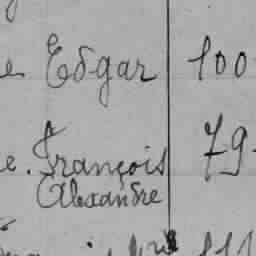 e Edgar 100
e. François 79
Alexandre